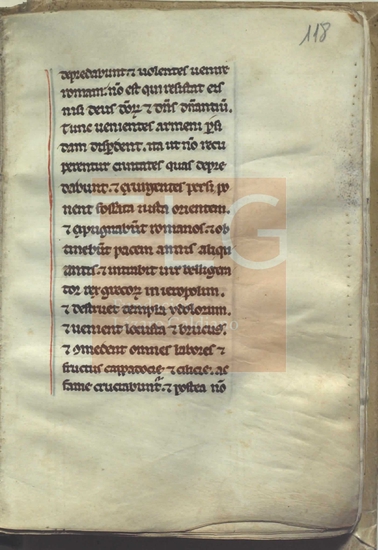 118
depredabunt & uolentes uenire
romam. nō est qui resistat eis
nisi deus dōrꝝ & dn̄s dn̄antiū.
Tunc uenientes armeni ꝑsi
dam disꝑdent. ita ut nō recu
perentur ciuitates quas depre
dabunt. & ꝯsurgentes persi po
nent fossata iuxta orientem.
& expugnabūt romanos & ob
tinebunt pacem annis aliqu
antis. & intrabit uir belliga
tor rex grecoꝝ in ieropolim.
& destruet templa ydolorum.
& uenient locusta & brucus.
& ꝯmedent omnes labores &
fructus cappadocie & cilicie. ac
fame cruciabunt᷑. & postea nō
FLG